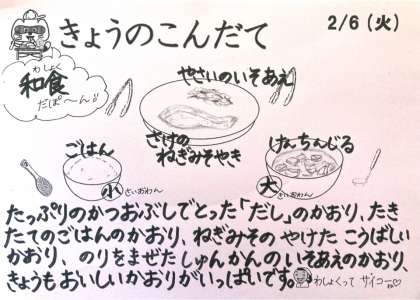 きょうのこんだて
2/6（火）
わしょく
和食
だぱ〜ん!
やさいのいそあえ
さけの
ねぎみそやき
ごはん
けんちんじる
小
さいおわん
大
さいおわん
たっぷりのかつおぶしでとった「だし」のかおり、たき
たてのごはんのかおり、ねぎみその やけた こうばしい
かおり、 のりをまぜたしゅんかんの いそあえのかおり、
きょうもおいしいかおりがいっぱいです。
わしょくって サイコー